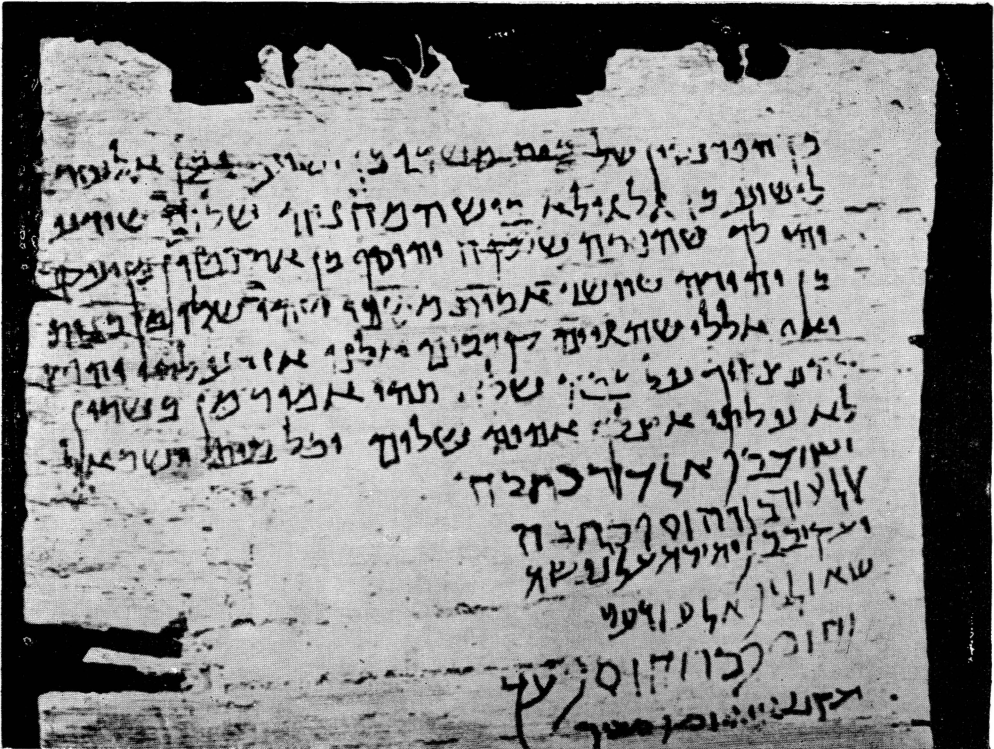 מן הפרנסין של בית משכו מן ישוע ומן אלעזר
לישוע בן גלגולה רוש המחניה שלום שידע
יהי לך שהפרה שלקח יהוסף בן אריסטון מיעקב
בן יהודה שיושב בבית משכו שהי שלו מזבנות
ואללי שהגיים קרבים אלנו אזי עלתי
על שלא תהי אומר מן בסרון
לא עלתי אצלך אהוה שלום וכל בית ישראל
ישוע בן אלעזר כתבה
אלעזר בן יהוסף כתבה
יעקוב בן יהודה על נפשה
שאול בן אלעזר עד
יהוסף בן יהוסף עד
יעקוב בן יהוסף מעיד